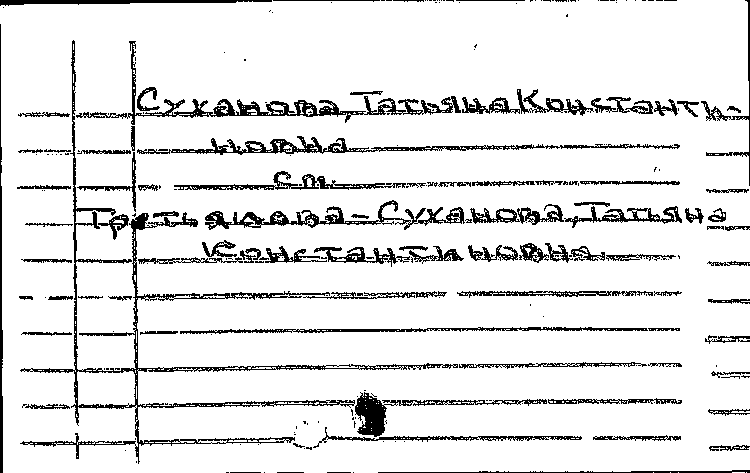 Суханова, Татьяна Константи-
новна
см.
Третьякова-Суханова, Татьяна
Константиновна.